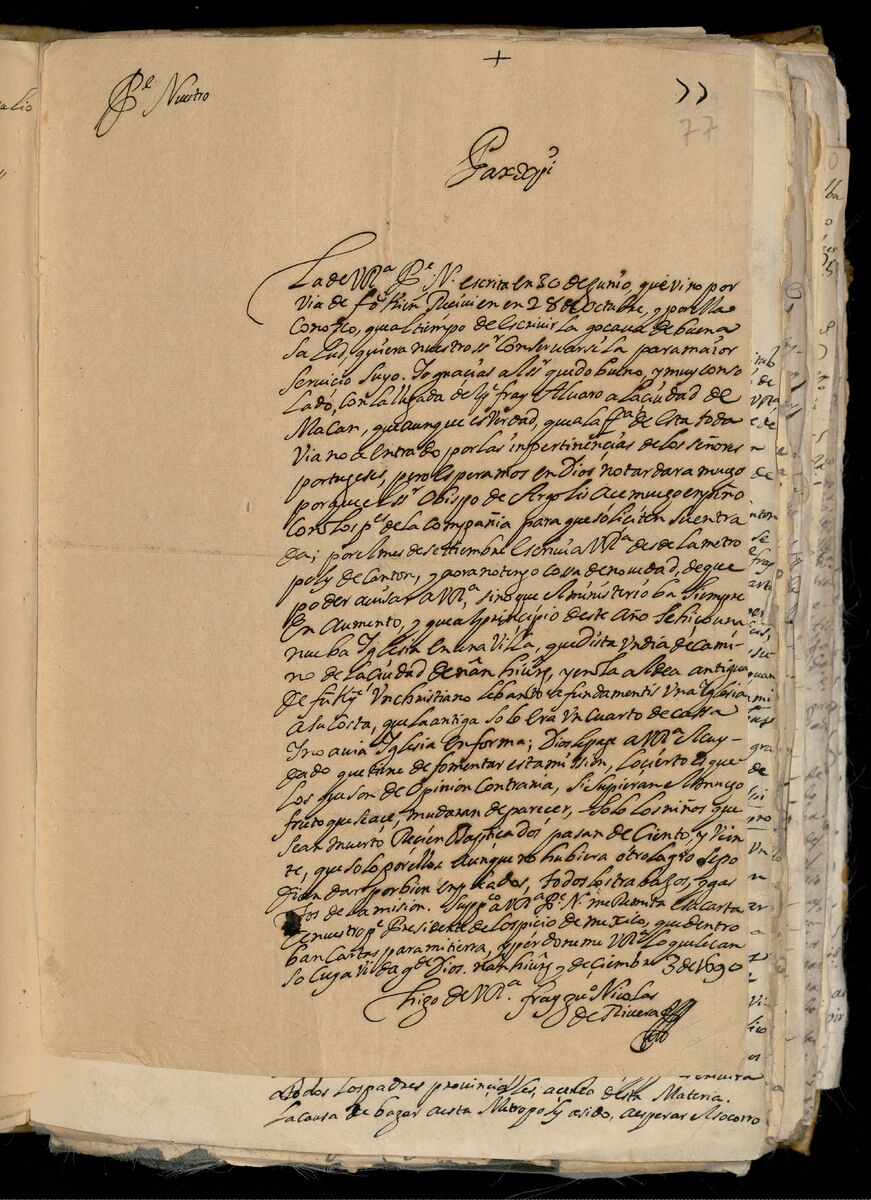 +
Pe Nuestro
77
77
Pax Xpi
La de VRa Pe. N. escrita en 30 de Junio, que vino por
via de fo Kien Recivi en en 28 de Octubre, y por ella
Conosco, que al tiempo de escrivir la gocava de buena
Salud, quiera nuestro sr conservarsela para maior
servicio suyo. Yo gracias a el sr quedo bueno, y muy conso
lado, con la llegada de N. fray Alvaro a la ciudad de
Macan, que aunque es verdad, que a la fha de esta toda
via no a entrado por las inpertinencias de los señores
portugeses, pero esperamos en Dios no tardara mucho
porque el sr Obispo de Argolis ace mucho enpeño
con los ps de la Compañia para que soliciten su entra
da; por el mes de settiembre escrivi a VRa desde la metro
poli de Canton, y aora no tengo cosa de novedad, de que
poder avisar a VRa, sino que el ministerio ba siempre
en aumento, y que al principio deste año se hico una
nueba Iglesia en una villa, que dista un dia de cami-
no de la ciudad de nân hiûng, y en la aldea antigua
de fu Ky Un christiano lebanto a fundamentis una Iglesia
a su costa, que la antiga solo era un cuarto de cassa
Y no avia Iglesia en forma; Dios le page a VRa el cuy-
dado que tiene de fomentar esta mission, lo cierto es que
los que son de opinion contraria, si supieran el mucho
fruto que se ace, mudaran de parecer, solo los niños que
se an muerto Recien baptiçados, pasan de ciento, y vein
te, que solo por ellos aunque no hubiera otro logro se po
dian dar por bien enpleados, todos los trabajos, y gas
tos de la mision. Suppco a VRa Pe. N. me remita esa carta
a nuestro pe Presidente del ospicio de mexico, que dentro
ban cartas para mi tierra, y perdoneme VRa lo que le can
so cuya vida gde Dios. nân hiûng y deciembre 3 de 1690
hijo de VRa. fray Juo Nicolas
de Rivera
a todos los padres provinciales, acerca desta Materia.
La causa de bajar a esta Metropoli, a sido, a esperar el socorro